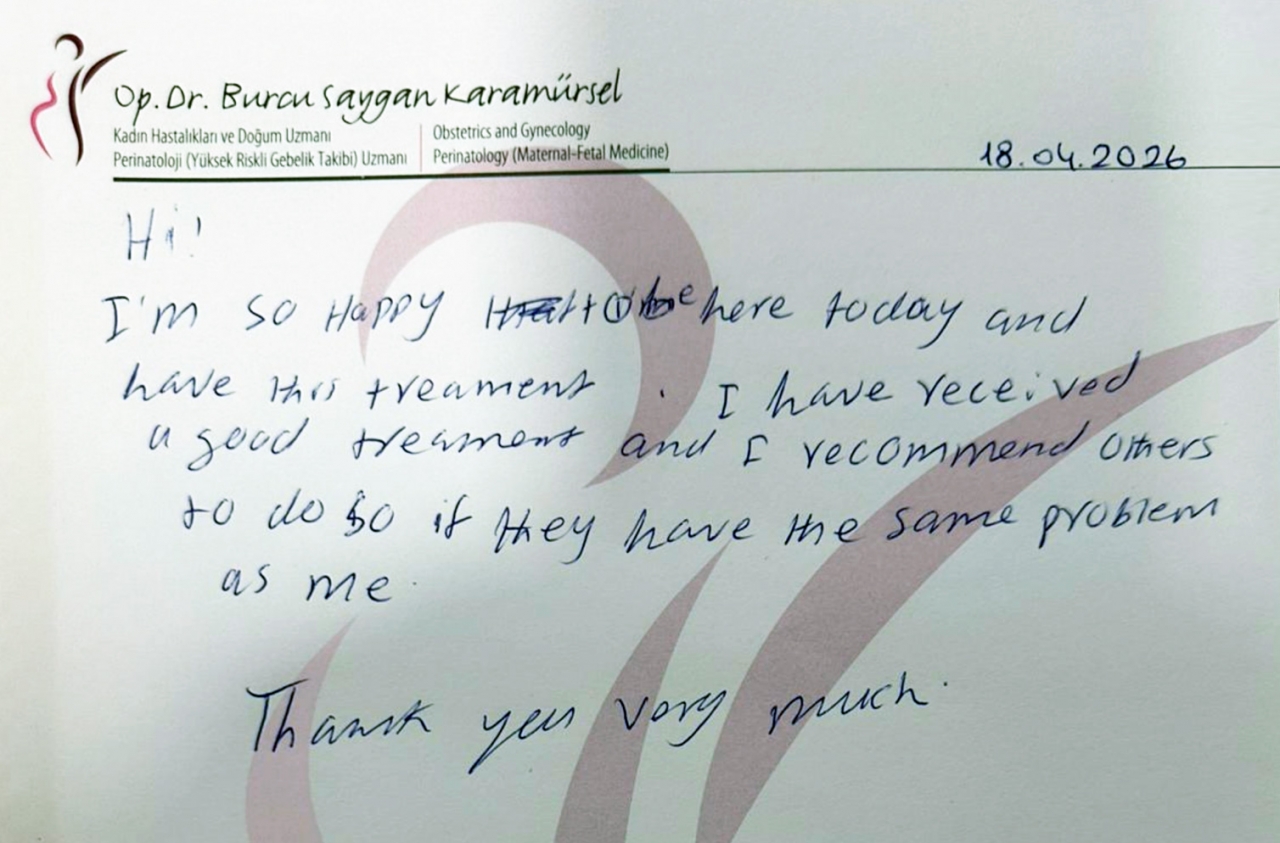 Op. Dr. Burcu Saygan Karamürsel
Kadın Hastalıkları ve Doğum Uzmanı
Perinatoloji (Yüksek Riskli Gebelik Takibi) Uzmanı
Obstetrics and Gynecology
Perinatology (Maternal-Fetal Medicine)
18.04.2026
Hi!
I'm so Happy to be here today and
have this treament. I have received
a good treament and I recommend others
to do so if they have the same problem
as me.
Thank you very much.